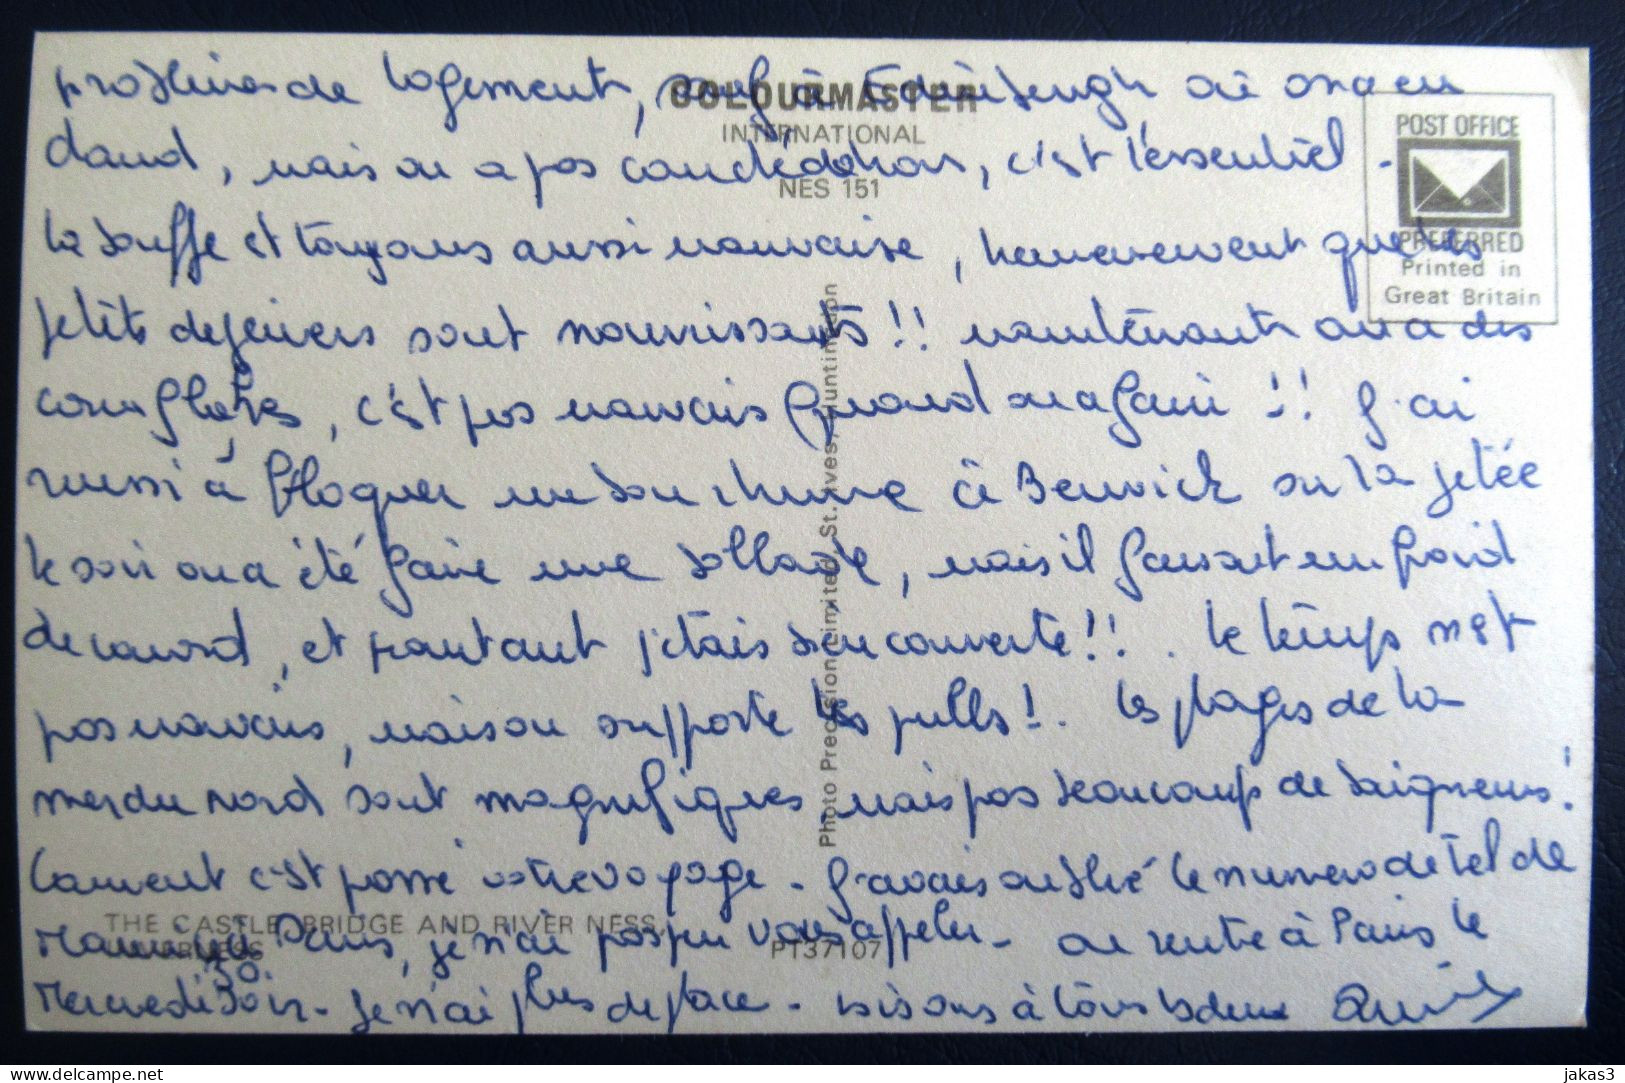 problème de logement, sauf à Edinburgh où on a eu
COLOURMASTER
INTERNATIONAL
NES 151
POST OFFICE
PREFERRED
Printed in
Great Britain
mais on a pas couché dehors, c'est l'essentiel -
la bouffe est toujours aussi mauvaise, heureusement que les
petits dejeuners sont nourrissants!! maintenant on a des
cornflakes, c'est pas mauvais quand on a faim!! J'ai
reussi à bloquer un bon rhume à Berwick sur la jetée
le soir on a été faire une ballade, mais il faisait un froid
de canard, et pourtant j'étais bien couverte!! . le temps n'est
pas mauvais, mais on supporte les pulls!. les plages de la
mer du Nord sont magnifiques mais pas beaucoup de baigneurs!
Comment c'est passé votre voyage - J'avais oublié le numero de tel de
je n'ai pas pu vous appeler - on rentre à Paris le
Mercredi 30 Soir - Je n'ai plus de place - bisous à tous les deux
Photo Precision Limited, St. Ives, Huntingdon
THE CASTLE, BRIDGE AND RIVER NESS,
INVERNESS
PT37107
delcampe.net
jakas3